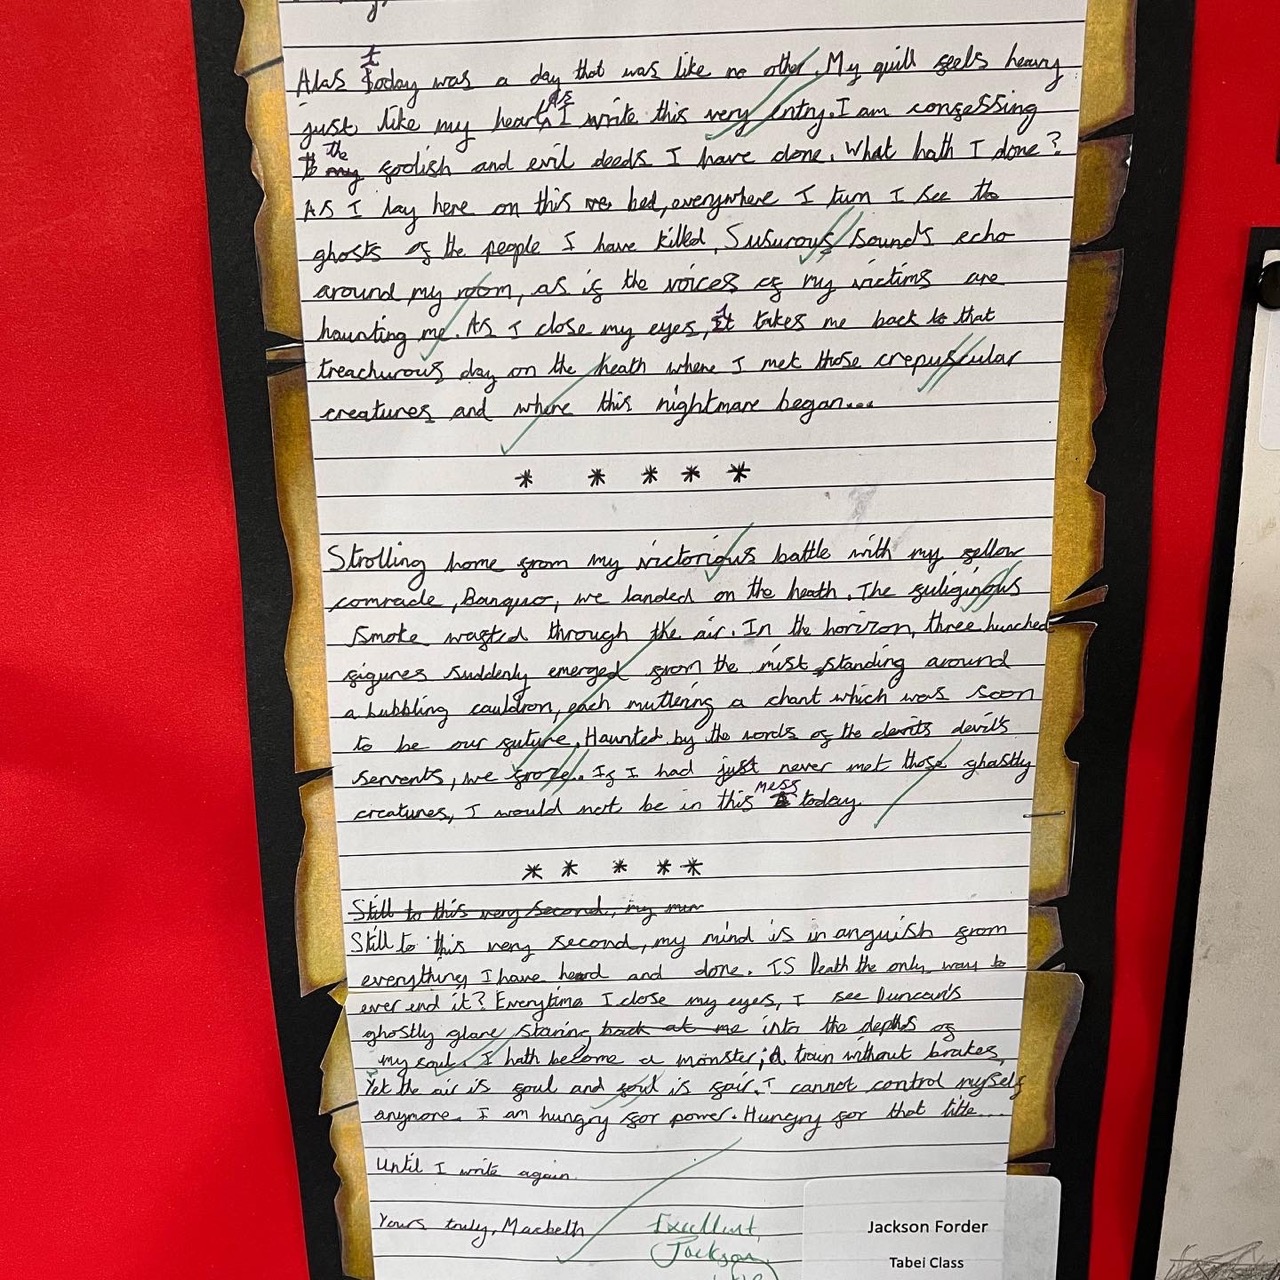 Alas today was a day that was like no other. My quill feels heavy
just like my heart, as I write this very entry. I am confessing
the foolish and evil deeds I have done. What hath I done?
As I lay here on this bed, everywhere I turn I see the
ghosts of the people I have killed. Susurous sounds echo
around my room, as if the voices of my victims are
haunting me. As I close my eyes, it takes me back to that
treachurous day on the heath where I met those crepuscular
creatures and where this nightmare began...
* * * * *
Strolling home from my victorious battle with my fellow
comrade, Banquo, we landed on the heath. The fuliginous
smoke wafted through the air. In the horizon, three hunched
figures suddenly emerged from the mist, standing around
a bubbling cauldron, each muttering a chant which was soon
to be our future. Haunted by the words of the devils devil's
servents, we froze... If I had just never met those ghastly
creatures, I would not be in this mess today.
* * * * *
Still to this very second, my min
Still to this very second, my mind is in anguish from
everything I have heard and done. IS Death the only way to
ever end it? Everytime I close my eyes, I see Duncan's
ghostly glare, staring back at me into the depths of
my soul. I hath become a monster; A train without brakes,
Yet the air is foul and foul is fair. I cannot control myself
anymore. I am hungry for power. Hungry for that title....
Until I write again.
Yours truly, Macbeth
Excellent,
Jackson
Jackson Forder
Tabei Class